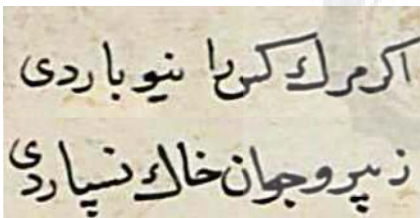 اکر مرك کس را نیوباردی
ز پیر و جوان خاك نسپاردی